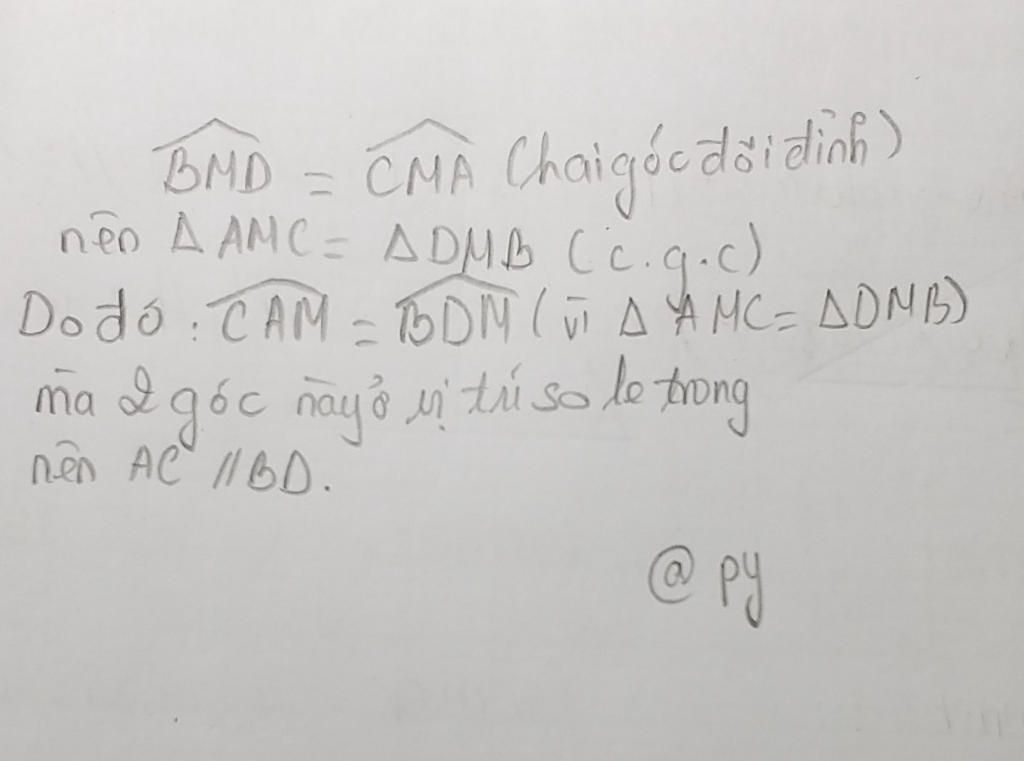 BMD = CMA (hai góc đối đỉnh)
nên Δ AMC = Δ DMB (c.g.c)
Do đó : CAM = BDM (vì Δ AMC = Δ DMB)
mà 2 góc này ở vị trí so le trong
nên AC // BD.
@ py